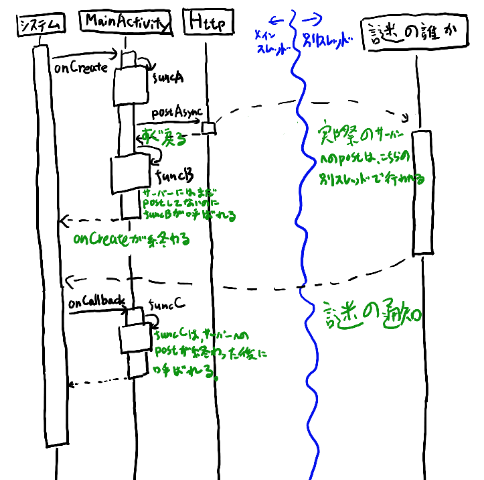 システム
MainActivity
Http
メイン
スレッド
別スレッド
謎の誰か
onCreate
funcA
postAsync
すぐ戻る
実際のサーバー
へのpostは、こちらの
別スレッドで行われる
funcB
サーバーにはまだ
postしてないのに
funcBが呼ばれる
onCreateが終わる
onCallback
funcC
謎の通知
funcCは、サーバーへの
postが終わった後に
呼ばれる。